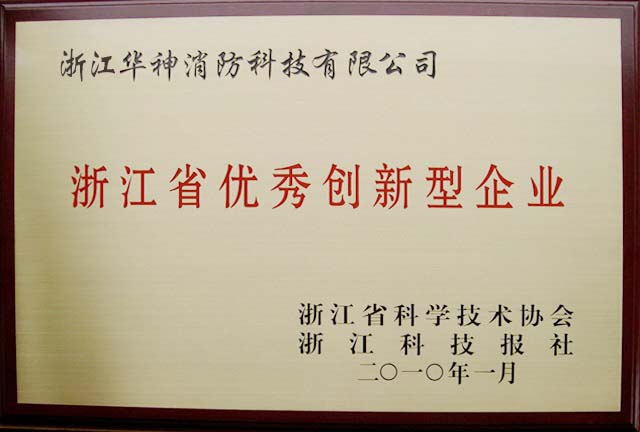 浙江华神消防科技有限公司
浙江省优秀创新型企业
浙江省科学技术协会
浙江科技报社
二〇一〇年一月